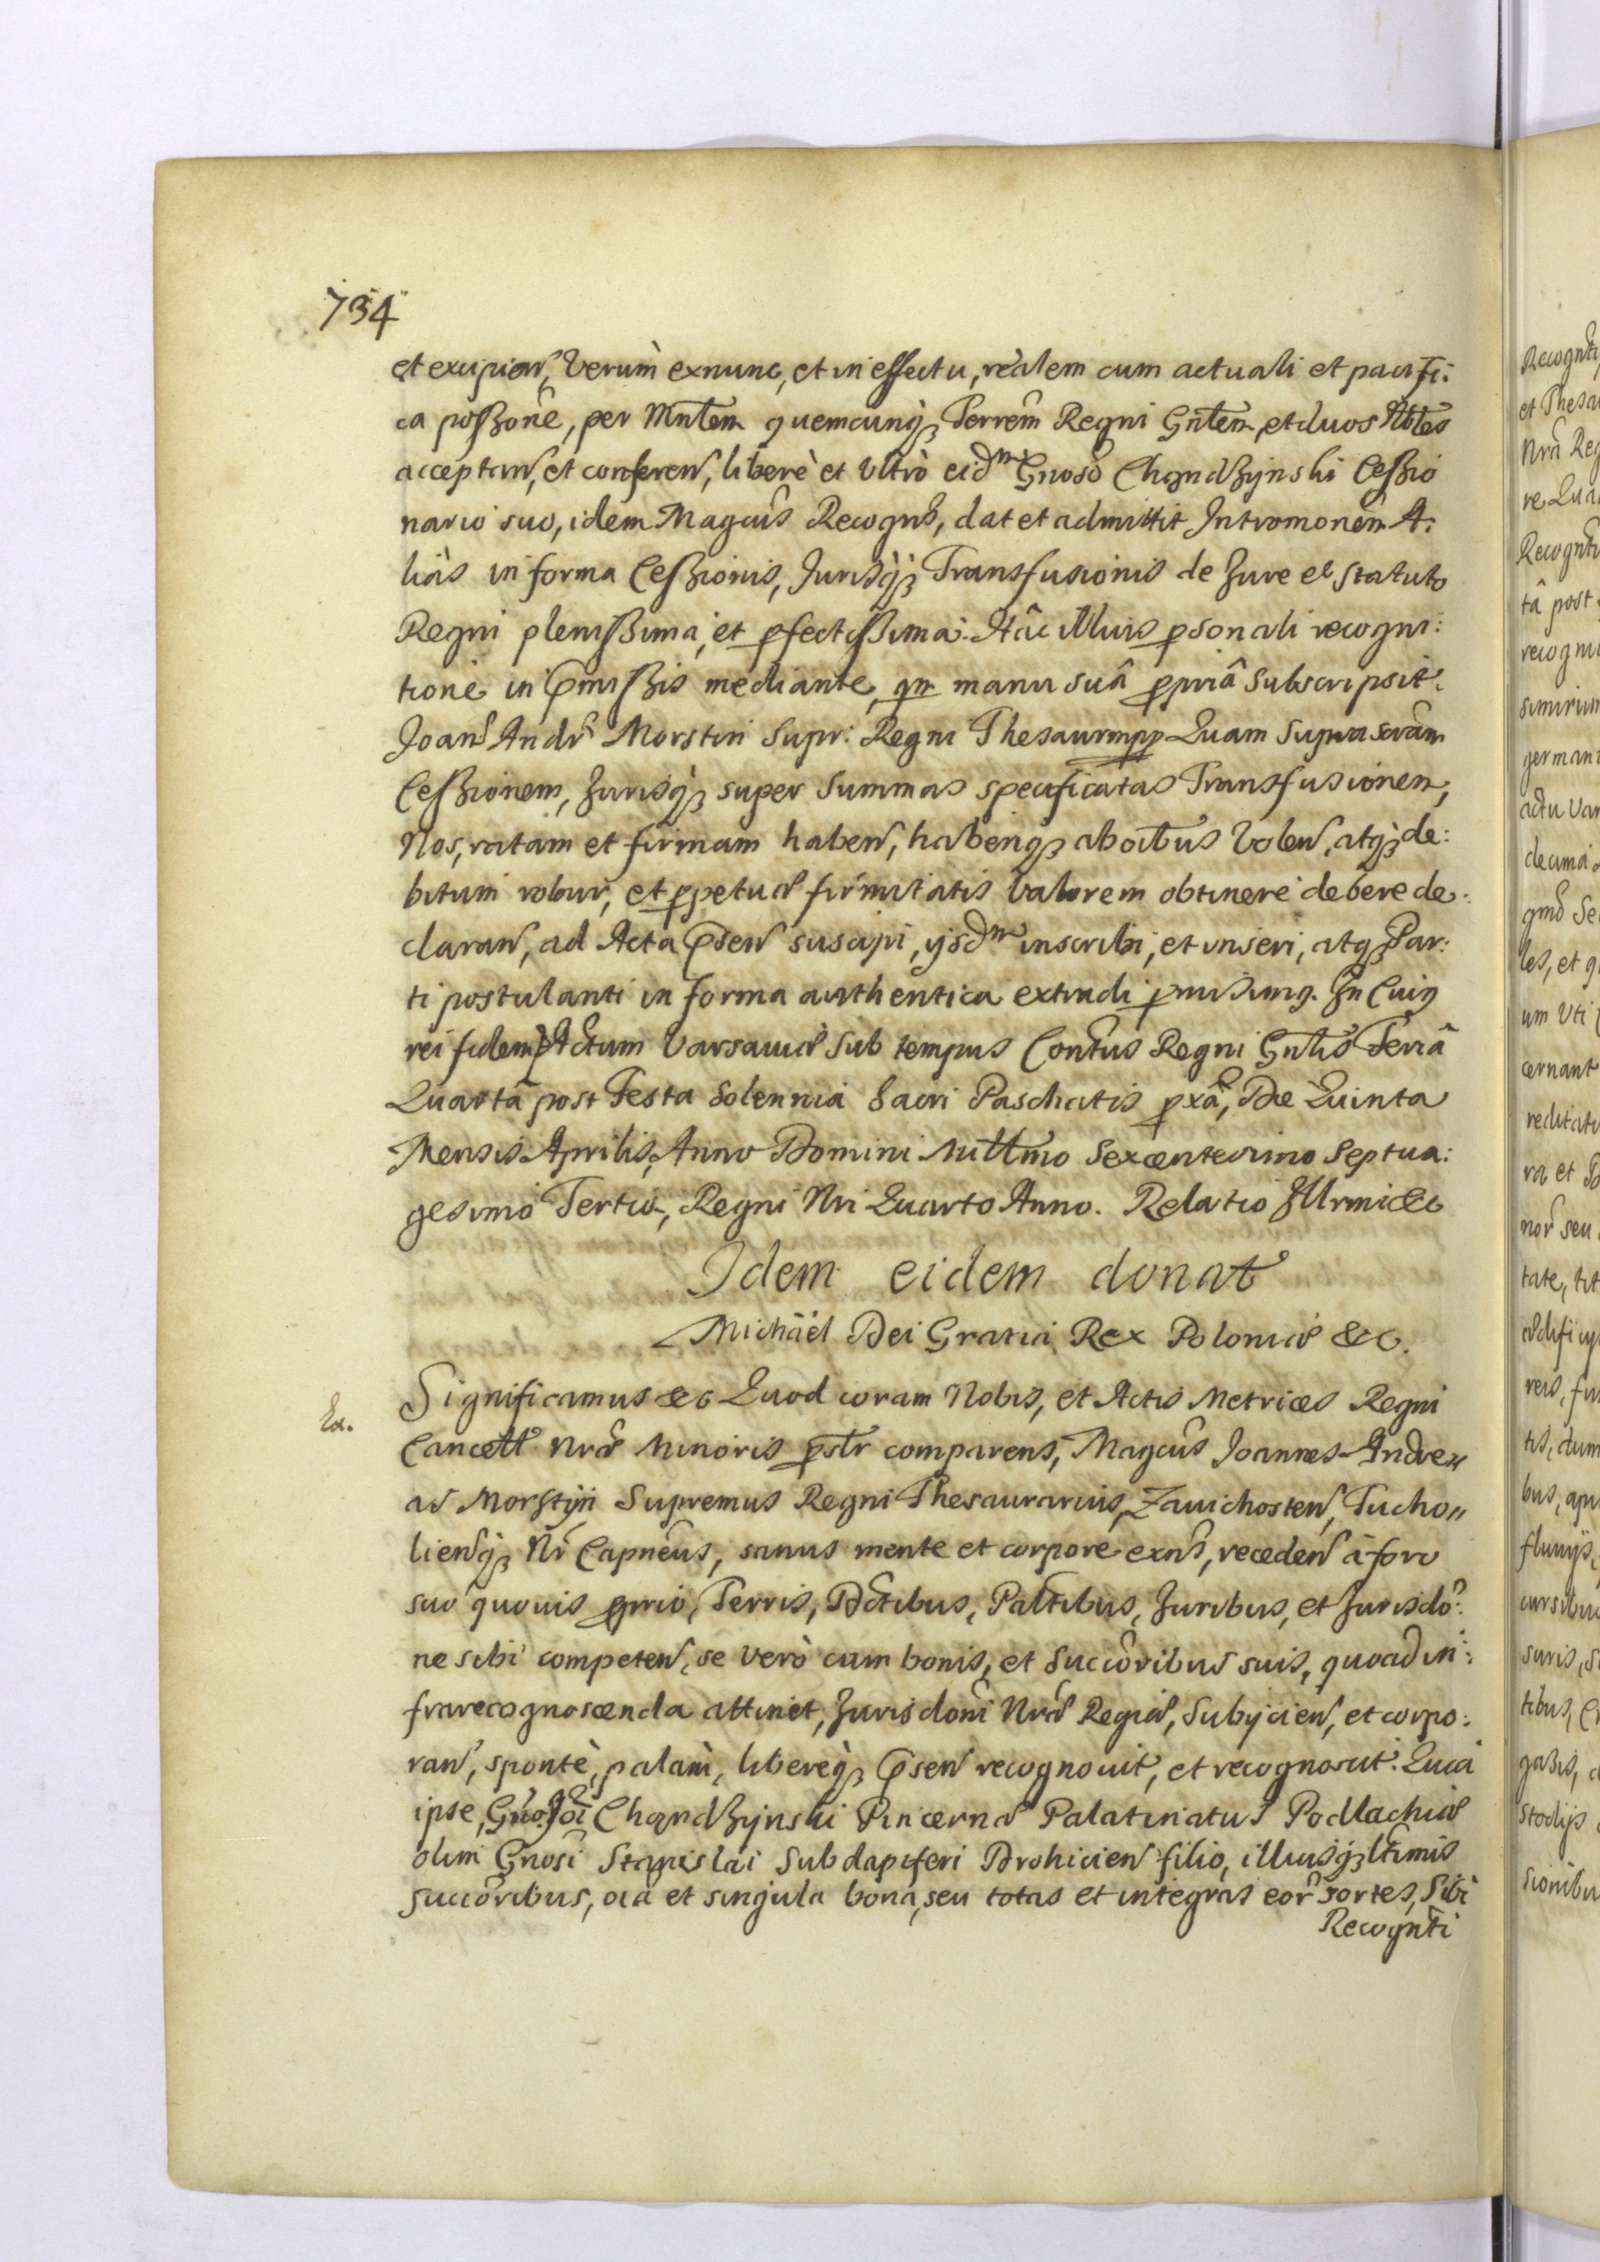 734
et excipien, Verùm exnunc, et in effectu, realem cum actuali et pacifi:
ca poßone, per Mntem quemcunq3 Terrem Regni Gnlem, et duos Nbles
acceptan, et conferen, liberè et Ultrò eidm Gnoso Chądzynski Ceßio
nario suo, idem Magcus Recogns, dat et admittit Intromonem A:
liàs in forma Ceßionis, Jurisq3 Transfusionis de Jure et Statuto
Regni plenißima, et pfectißima. Hâc illius psonali recogni:
tione in Pmißis mediante, qm manu suâ ppriâ Subscripsit.
Joans Andrs Morstin Supr: Regni Thesaur mpp Quam Supra scram
Ceßionem, Jurisq3 super Summas specificatas Transfusionem,
Nos, ratam et firmam haben, haberiq3 ab oibus Volen, atq3 de:
bitum robur, et ppetuæ firmitatis Valorem obtinere debere de:
claran, ad Acta Psen suscipi, ijsdm inscribi, et inseri, atq3 Par:
ti postulanti in forma authentica extradi pmisimq. In Cuiq
rei fidem Actum Varsaviæ Sub tempus Contus Regni Gnlis Feriâ
Quarta post Festa Solennia Sacri Paschatis pxâ, Die Quinta
Mensis Aprilis, Anno Domini Millmo Sexcentesimo Septua:
gesimo Tertio, Regni Nri Quarto Anno. Relatio Illrmi &c
Idem eidem donat
Michäel Dei Gratia Rex Poloniæ &c.
Ex.
Significamus &c Quod coram Nobis, et Actis Metrices Regni
Cancell Nræ Minoris pstr comparens, Magcus Joannes Andre„
as Morstijn Supremus Regni Thesaurarius, Zavichosten, Tucho„
lienq3 Nr Capneus, sanus mente et corpore exns, receden à foro
suo quovis pprio, Terris, Dctibus, Paltibus, Juribus, et Jurisdo:
ne sibi competen, se verò cum bonis, et Succoribus suis, quoad in:
frarecognoscenda attinet, Jurisdoni Nræ Regiæ, Subijcien, et corpo:
ran, spontè, palàm, libereq3 Psen recognouit, et recognoscit. Quia
ipse, Gnoso Joi Chądzynski Pincernæ Palatinatus Podlachiæ
olim Gnosi Stanislai Subdapiferi Drohicien filio, illiusq3 ltimis
succoribus, oia et singula bona, seu totas et integras eor sortes, Sibi
Recognti